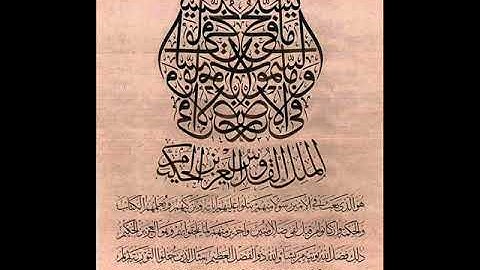 يسبح لله ما في السموات وما في الارض
الملك القدوس العزيز الحكيم
هو الذي بعث في الاميين رسولا منهم يتلوا عليهم اياته ويزكيهم ويعلمهم الكتاب
والحكمة وان كانوا من قبل لفي ضلال مبين واخرين منهم لما يلحقوا بهم وهو العزيز الحكيم
ذلك فضل الله يؤتيه من يشاء والله ذو الفضل العظيم مثل الذين حملوا التورية ثم لم